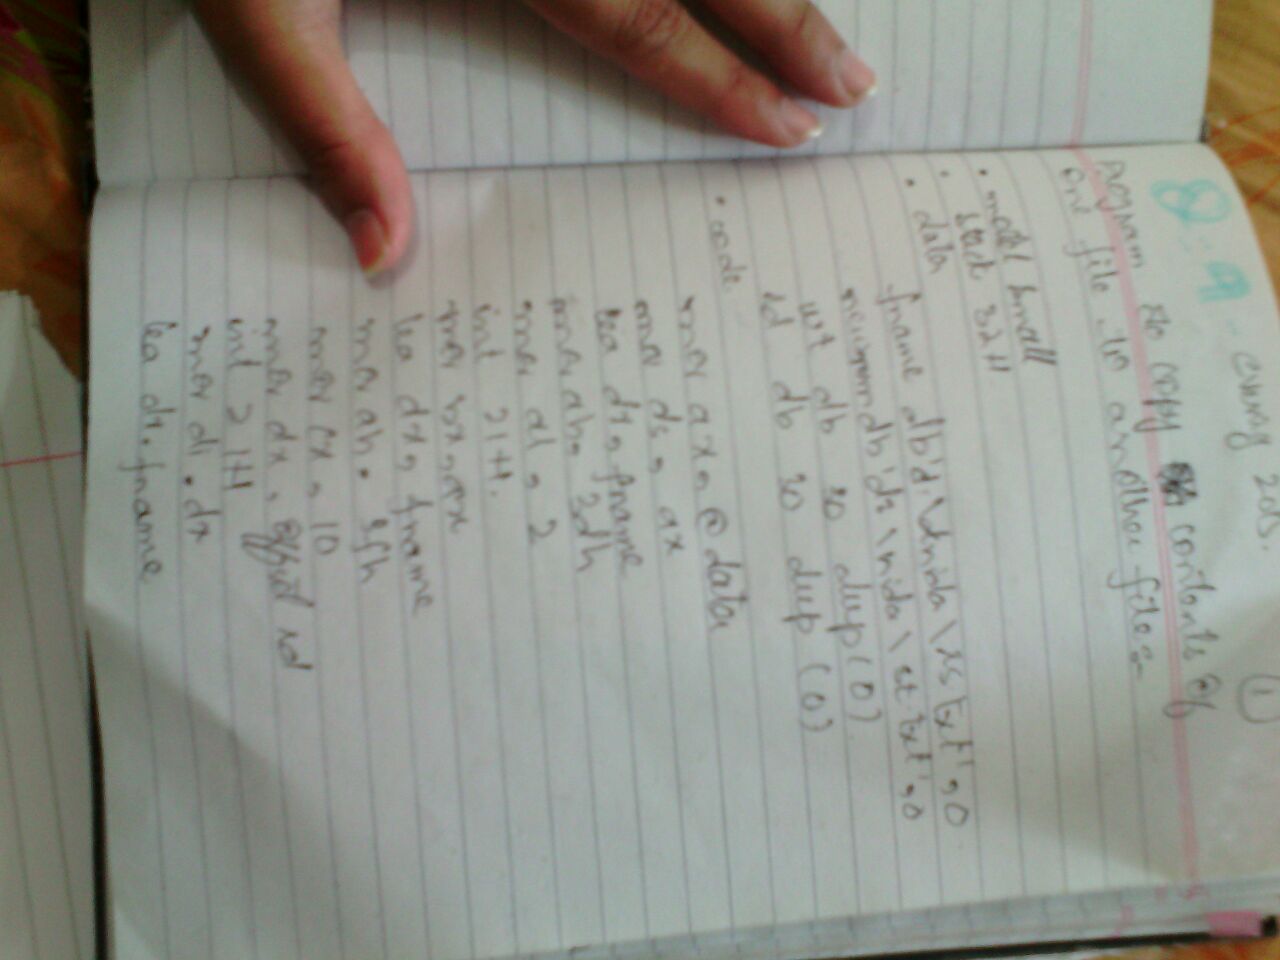 8.9 - using 20s.
①
Program to copy contents of
one file to another file
.model small
.stack 32H
.data
fname db 'd:\
db 'd:\nida\ et txt',0
db 30 dup(0)
id db 30 dup (0)
.code
mov ax, @data
mov ds, ax
lea dx, fname
mov ah, 3dh
mov al, 2
int 21H.
mov bx, ax
lea dx, fname
mov ah, 3fh
mov cx, 10
mov dx, offset id
int 21H
mov di, dx
lea dx, fname